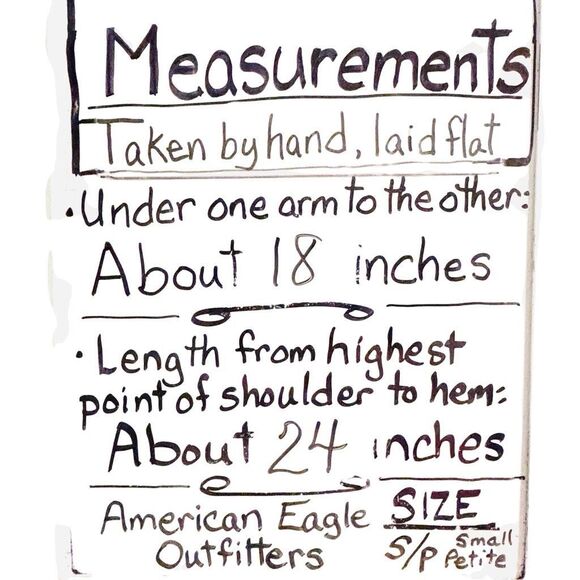 Measurements
Taken by hand, laid flat
• Under one arm to the other:
About 18 inches
• Length from highest
point of shoulder to hem:
About 24 inches
American Eagle SIZE
Outfitters S/P Small Petite